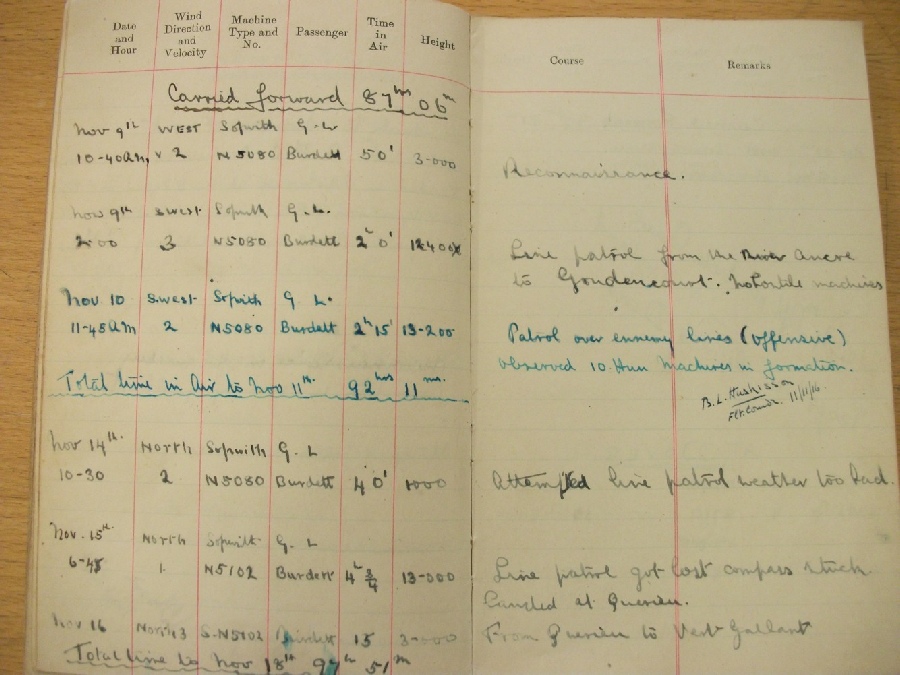 Date and Hour Wind Direction and Velocity Machine Type and No. Passenger Time in Air Height Course Remarks
Carried forward 87hrs 06m
Nov 9th WEST Sopwith G. L.
10-40am, " 2 N5080 Burdett 50' 3-000 Reconnaissance.
Nov 9th S.West Sopwith G. L.
2-00 3 N5080 Burdett 2h 0' Line patrol from the River Ancre
to Goudencourt. No hostile machines
Nov 10 S.West Sopwith G. L.
11-45am 2 N5080 Burdett 2h 15' 13-200 Patrol over ennemy lines (offensive)
observed 10 Hun Machines in formation.
Total time in Air to Nov 11th. 92hrs 11ms.
B. L. Huskisson
Flt. Comdr. 11/11/16
Nov 14th. North Sopwith G. L
10-30 2 N5080 Burdett 40' 1000 Attempted line patrol weather too bad.
Nov. 15th. North Sopwith G. L
6-45 1 N5102 Burdett 13-000 Line patrol got lost compass stuck
landed at Querieu.
Nov 16 North 3 S.N5102 Burdett 15 3-000 From Querieu to Vert Gallant
Total time to Nov 18th 97hr 51m